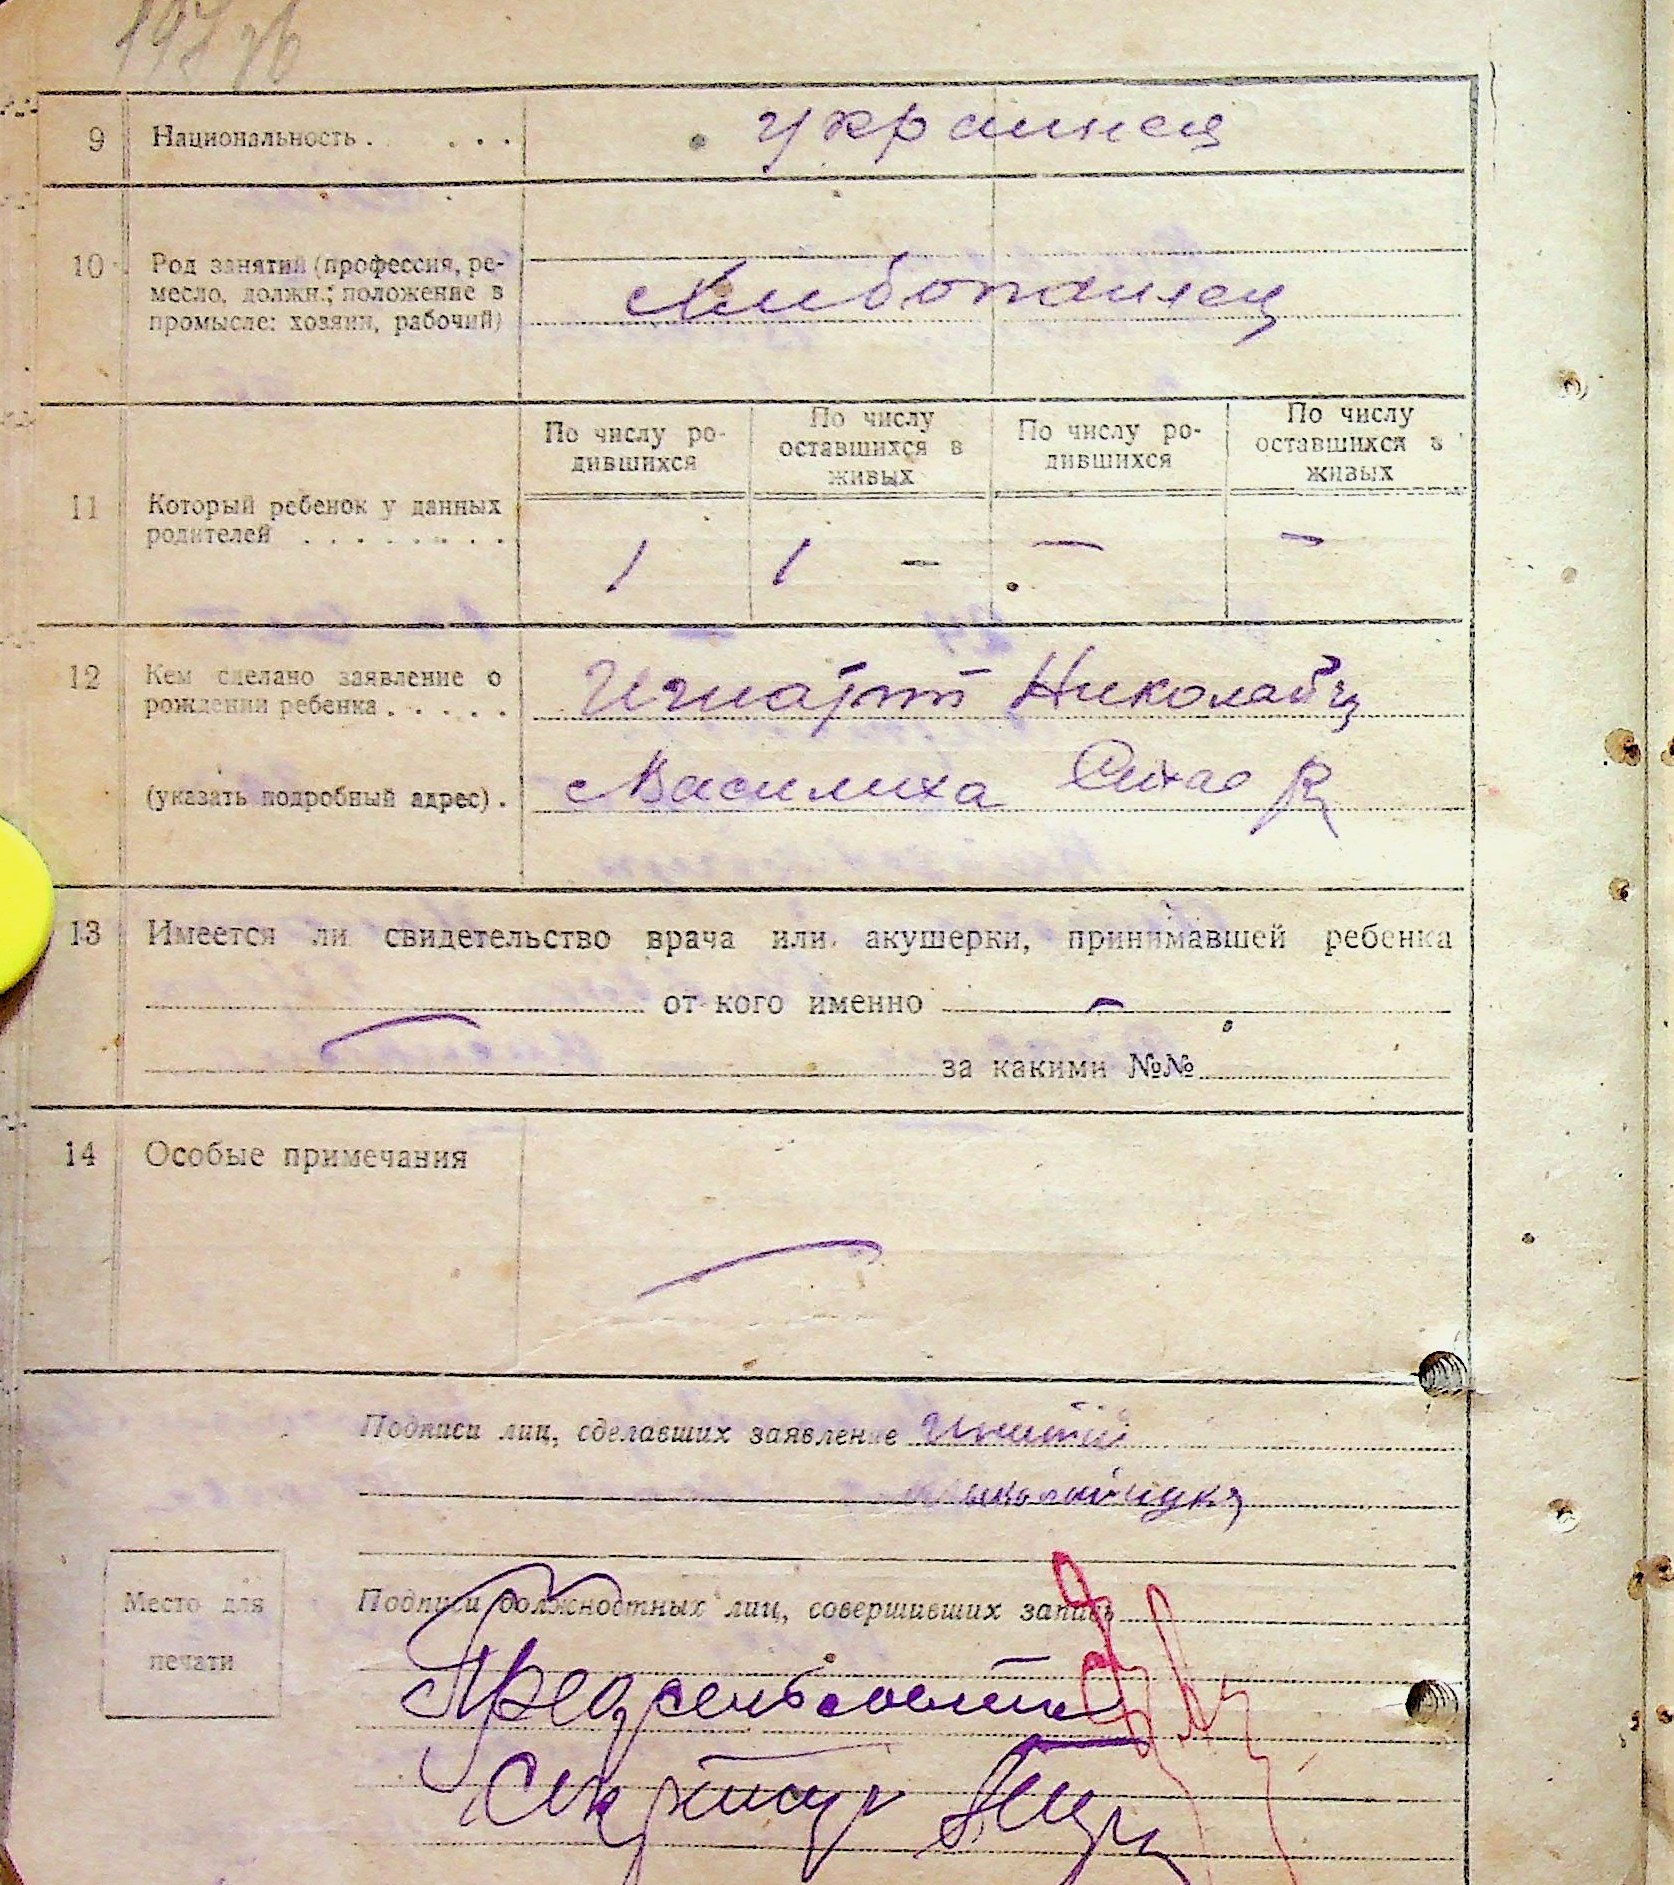 9 Национальность . . . . украинец
10 Род занятий (профессия, ре-
месло, должн.; положение в
промысле: хозяин, рабочий)
Хлебопашец
По числу ро-
дившихся
По числу
оставшихся в
живых
По числу ро-
дившихся
По числу
оставшихся в
живых
11 Который ребенок у данных
родителей . . . . . . . .
1 1 – – –
12 Кем сделано заявление о
рождении ребенка . . . . .
(указать подробный адрес) .
Василиха
13 Имеется ли свидетельство врача или акушерки, принимавшей ребенка
от кого именно –
за какими №№
14 Особые примечания
Подписи лиц, сделавших заявление
Место для
печати
Подписи должностных лиц, совершивших запись
Пред сельсовета
Секретарь